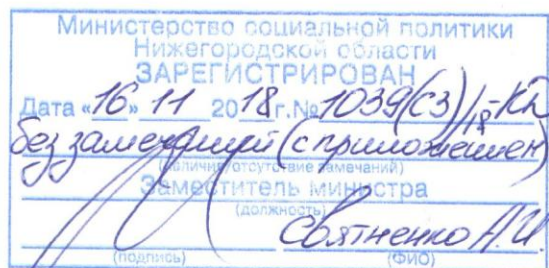 Министерство социальной политики
Нижегородской области
ЗАРЕГИСТРИРОВАН
Дата «16» 11 2018г.№1039(СЗ)/18-КД
без замечаний (с приложением)
(наличие/отсутствие замечаний)
Заместитель министра
(должность)
Святненко А.И.
(подпись) (ФИО)